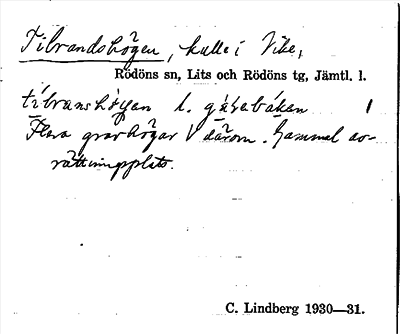 Tibrandshögen, kulle i Vike,
Rödöns sn, Lits och Rödöns tg, Jämtl. l.
tíbranshö̀gan l.
Flera gravhögar V därom. Gammal av-
rättningsplats.
C. Lindberg 1930—31.